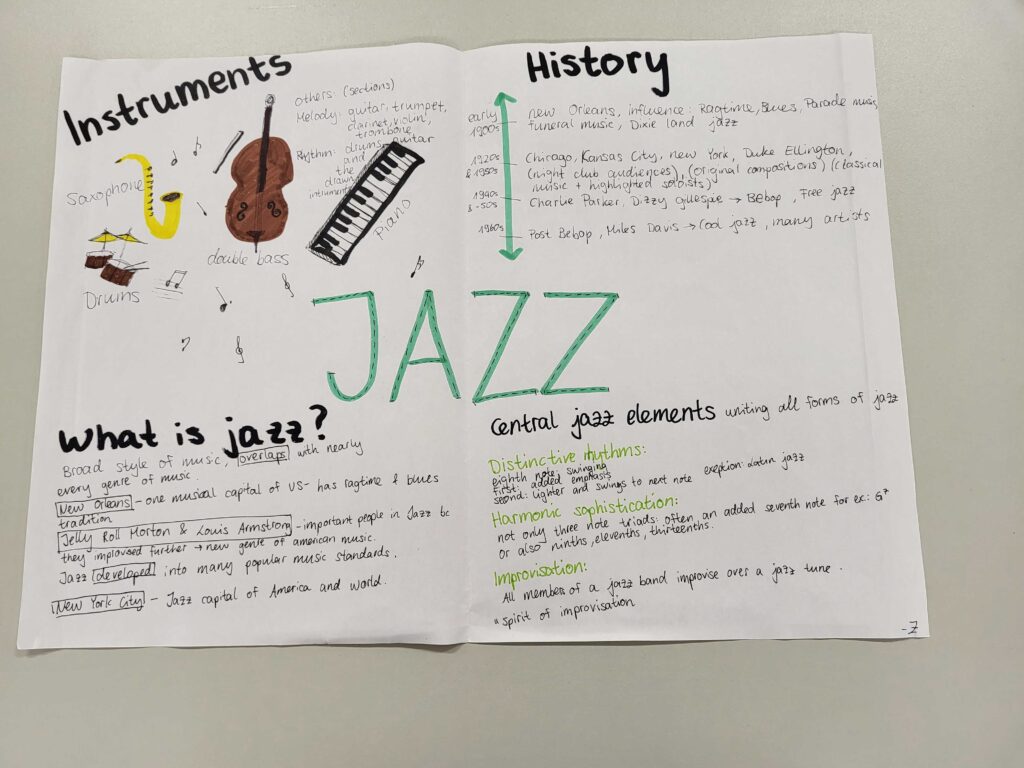 Instruments
Others: (sections)
Melody: guitar, trumpet,
clarinet, violin,
trombone
Rhythm: drums, guitar
and
the
drawn
intruments
Saxophone
double bass
Piano
Drums
History
early
1900s
new Orleans, influence: Ragtime, Blues, Parade music
funeral music, Dixie land jazz
1920s
& 1930s
Chicago, Kansas City, new York, Duke Ellington,
(night club audiences), (original compositions) (classical
music + highlighted soloists)
1940s
& -50s
Charlie Parker, Dizzy gillespie → Bebop, Free jazz
1960s
Post Bebop, Miles Davis → Cool jazz, many artists
JAZZ
What is jazz?
Broad style of music, overlaps with nearly
every genre of music.
New Orleans - one musical capital of US - has ragtime & blues
tradition
Jelly Roll Morton & Louis Armstrong - important people in Jazz bc
they improvised further → new genre of american music.
Jazz developed into many popular music standards.
New York City - Jazz capital of America and world.
Central jazz elements uniting all forms of jazz
Distinctive rhythms:
eighth note, swinging
first: added emphasis
second: lighter and swings to next note exeption: Latin jazz
Harmonic sophistication:
not only three note triads: often an added seventh note for ex.: G7
or also ninths, elevenths, thirteenths.
Improvisation:
All members of a jazz band improvise over a jazz tune.
"spirit of improvisation
-Z